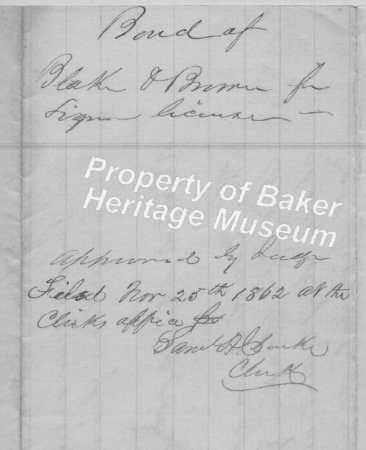 Bond of
Blake & Brown for
Liquor license
Property of Baker
Heritage Museum
Approved by Judge
Filed Nov 25th 1862 at the
Clerks office
Saml H. Clarke
Clerk